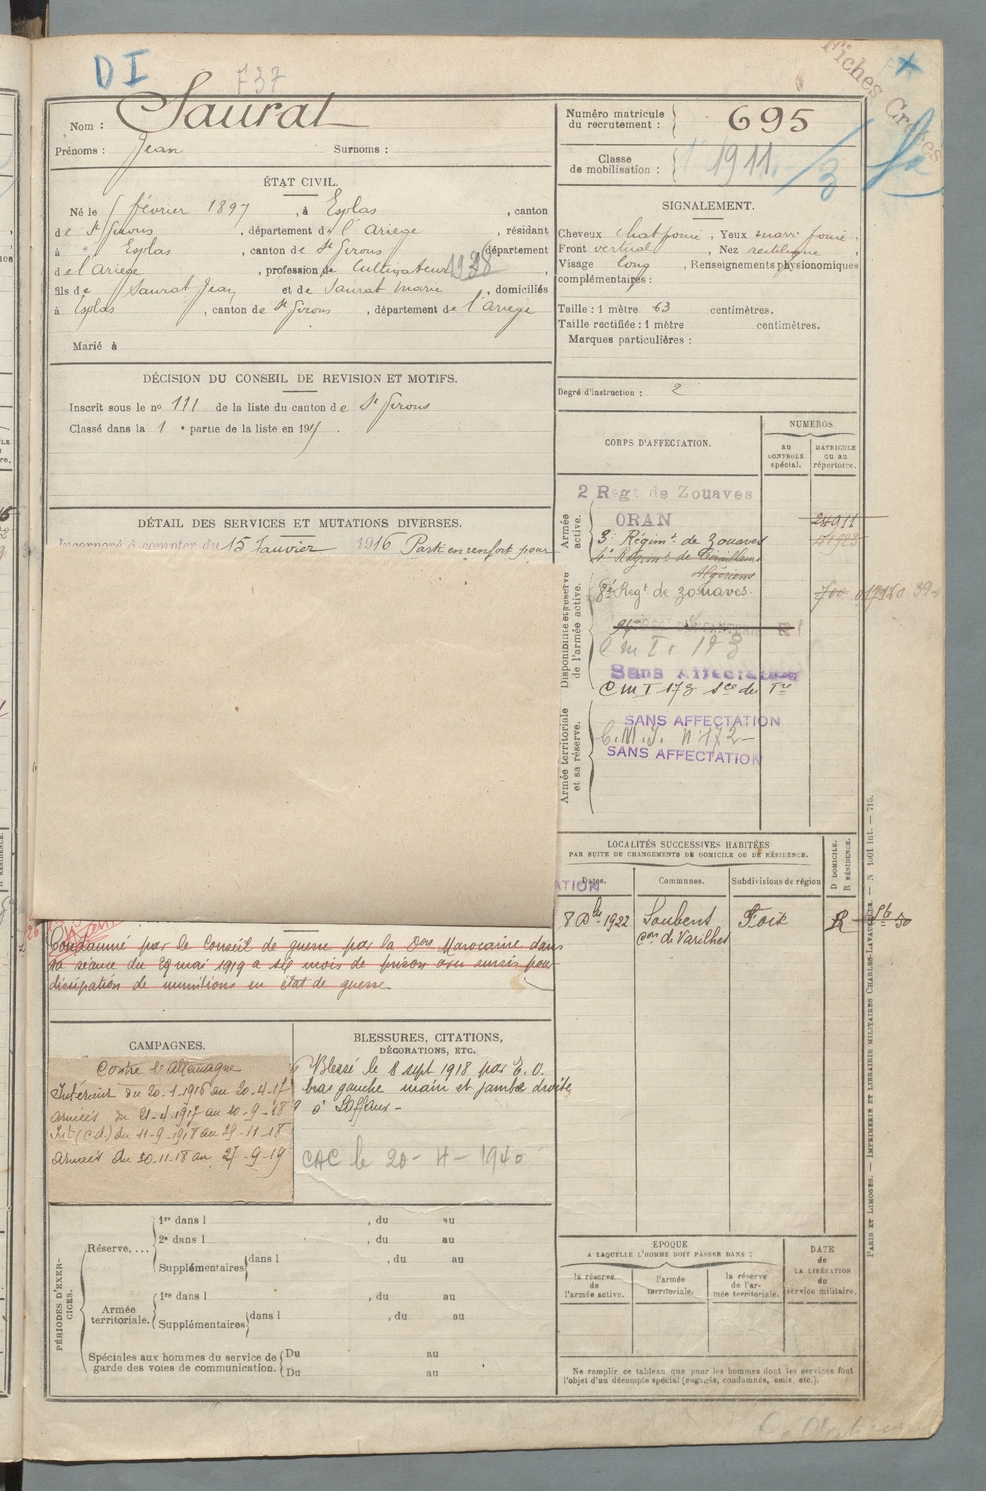 DI
737
Fiches Croisées
Nom : Saurat
Prénoms : Jean Surnoms :
Numéro matricule du recrutement : 695
Classe de mobilisation : 1911
ÉTAT CIVIL.
Né le 5 février 1897, à Esplas, canton
de St Girons, département de l'Ariège, résidant
à Esplas, canton de St Girons, département
de l'Ariège, profession de Cultivateur 1928,
fils de Saurat Jean et de Saurat Marie, domiciliés
à Esplas, canton de St Girons, département de l'Ariège
Marié à
DÉCISION DU CONSEIL DE REVISION ET MOTIFS.
Inscrit sous le no 111 de la liste du canton de St Girons
Classé dans la 1e partie de la liste en 191
DÉTAIL DES SERVICES ET MUTATIONS DIVERSES.
Incorporé à compter du 15 Janvier 1916 Parti en renfort pour
Condamné par le Conseil de guerre par la Don Marocaine dans
sa séance du 29 mai 1919 a six mois de prison avec sursis pour
dissipation de munitions en état de guerre
CAMPAGNES.
Contre l'Allemagne
Intérieur du 20-1-1916 au 20-4-17
armées du 21-4-1917 au 10-9-18
Int (c.d.) du 11-9-1918 au 29-11-18
armées du 30-11-18 au 27-9-19
BLESSURES, CITATIONS,
DÉCORATIONS, ETC.
Blessé le 8 sept 1918 par E.O.
bras gauche main et jambe droite
à Laffaux -
CAC le 20-4-1940
PÉRIODES D'EXERCICES.
Réserve....
1re dans l , du au
2e dans l , du au
Supplémentaires dans l , du au
Armée territoriale.
1re dans l , du au
Supplémentaires dans l , du au
Spéciales aux hommes du service de garde des voies de communication.
Du au
Du au
SIGNALEMENT.
Cheveux chat foncé, Yeux marr foncé,
Front vertical, Nez rectiligne,
Visage long, Renseignements physionomiques
complémentaires :
Taille : 1 mètre 63 centimètres.
Taille rectifiée : 1 mètre centimètres.
Marques particulières :
Degré d'instruction : 2
CORPS D'AFFECTATION.
NUMÉROS
au CONTROLE spécial.
MATRICULE ou au répertoire.
Armée active.
2 Régt de Zouaves
ORAN
24911
3e Régimt. de zouaves
4e Régimt. de Tirailleurs
Algériens
8e Regt. de zouaves.
Disponibilité et réserve de l'armée active.
Sans Affectation
CMI 173
Armée territoriale et sa réserve.
SANS AFFECTATION
C.M.I. N°172 -
SANS AFFECTATION
LOCALITÉS SUCCESSIVES HABITÉES
PAR SUITE DE CHANGEMENTS DE DOMICILE OU DE RÉSIDENCE.
Dates. Communes. Subdivisions de région D DOMICILE. R RÉSIDENCE.
8 Dbre 1922 Loubens Foix R
con de Varilhes
ÉPOQUE
A LAQUELLE L'HOMME DOIT PASSER DANS :
la réserve de l'armée active.
l'armée territoriale.
la réserve de l'armée territoriale.
DATE de LA LIBÉRATION du service militaire.
Ne remplir ce tableau que pour les hommes dont les services font
l'objet d'un décompte spécial (engagés, condamnés, omis, etc.).
PARIS ET LIMOGES. — IMPRIMERIE ET LIBRAIRIE MILITAIRES CHARLES-LAVAUZELLE. — N 1061 int. — 715.